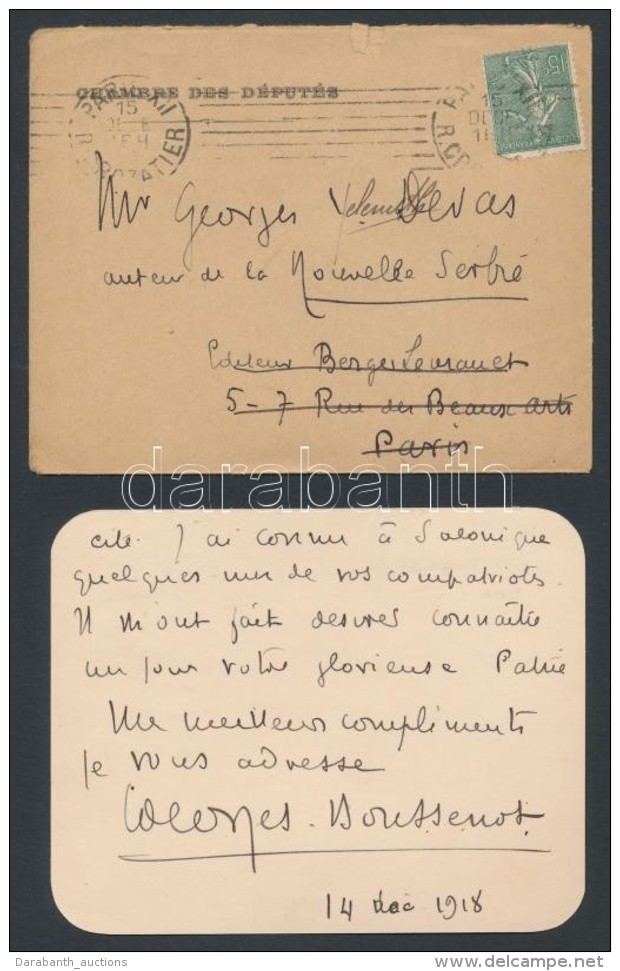 CHAMBRE DES DÉPUTÉS
15
15
15c
Mr Georges Devas
auteur de la Nouvelle Serbie
Editeur Berger Levrault
5-7 Rue des Beaux arts
Paris
darabanth
cité. J'ai connu à Salonique
quelques uns de vos compatriotes.
Il m'ont fait désirer connaître
un jour votre glorieuse Patrie
Mes meilleurs compliments
je vous adresse
Georges Boussenot
14 dec 1918
Darabanth_auctions
www.delcampe.net